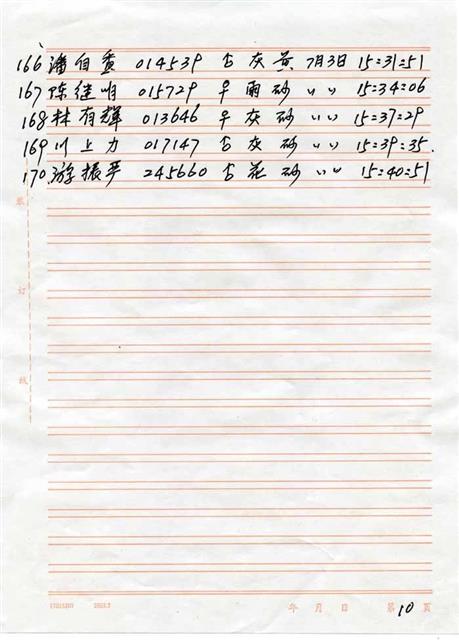 166 潘自重 014539 ♂ 灰 黄 7月3日 15:31:51
167 陈继明 015729 ♀ 雨 砂 〃 〃 15:34:06
168 林有辉 013646 ♀ 灰 砂 〃 〃 15:37:29
169 川上力 017147 ♂ 灰 砂 〃 〃 15:39:35.
170 游振平 245660 ♂ 花 砂 〃 〃 15:40:51
装
订
线
年 月 日 第 10 页